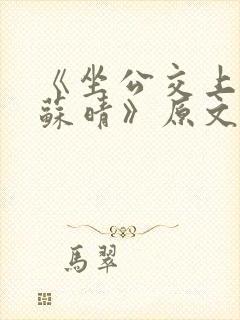 《坐公交上
蘇晴》原文
馬翠